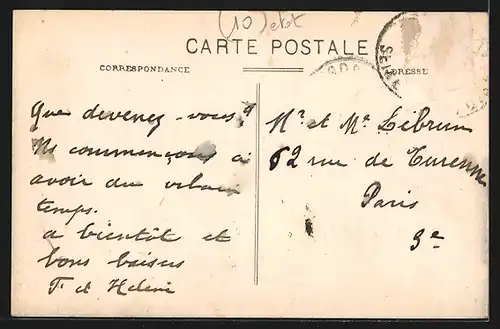 (10)
CARTE POSTALE
CORRESPONDANCE
ADRESSE
SEINE
Que devenez-vous?
Ns commençons à
avoir du vilain
temps.
a bientôt et
bons baisers
F et Helene
Mr et Me Lebrun
62 rue de Turenne
Paris
3e